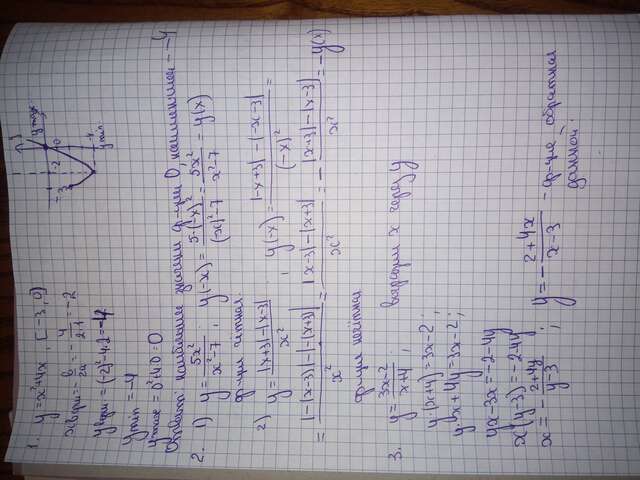 1. y=x²+4x , [-3, 0]
x верш.= -b/2a = -4/2·1 = -2
y верш = (-2)²-4·2=-4
y min = -4
y max = 0²+4·0=0
Ответ: наибольшее значение ф-ции 0, наименьшее - -4
y max
-3 -2 0
-4
y min
2. 1) y= 5x²/x²-7 ; y(-x)= 5·(-x)²/(-x)²-7 = 5x²/x²-7 = y(x)
ф-ция чётная.
2) y= |x+3|-|x-3|/x² ; y(-x)= |-x+3|-|-x-3|/(-x)² =
= |-(x-3)|-|-(x+3)|/x² = |x-3|-|x+3|/x² = - |x+3|-|x-3|/x² = -y(x)
ф-ция нечётная
3. y= 3x-2/x+4 ; выразим x через y
y·(x+4)=3x-2 ;
y·x+4y=3x-2 ;
yx-3x=-2-4y
x(y-3)=-2-4y
x=- 2+4y/y-3 ; y=- 2+4x/x-3 - ф-ция обратная
данной.